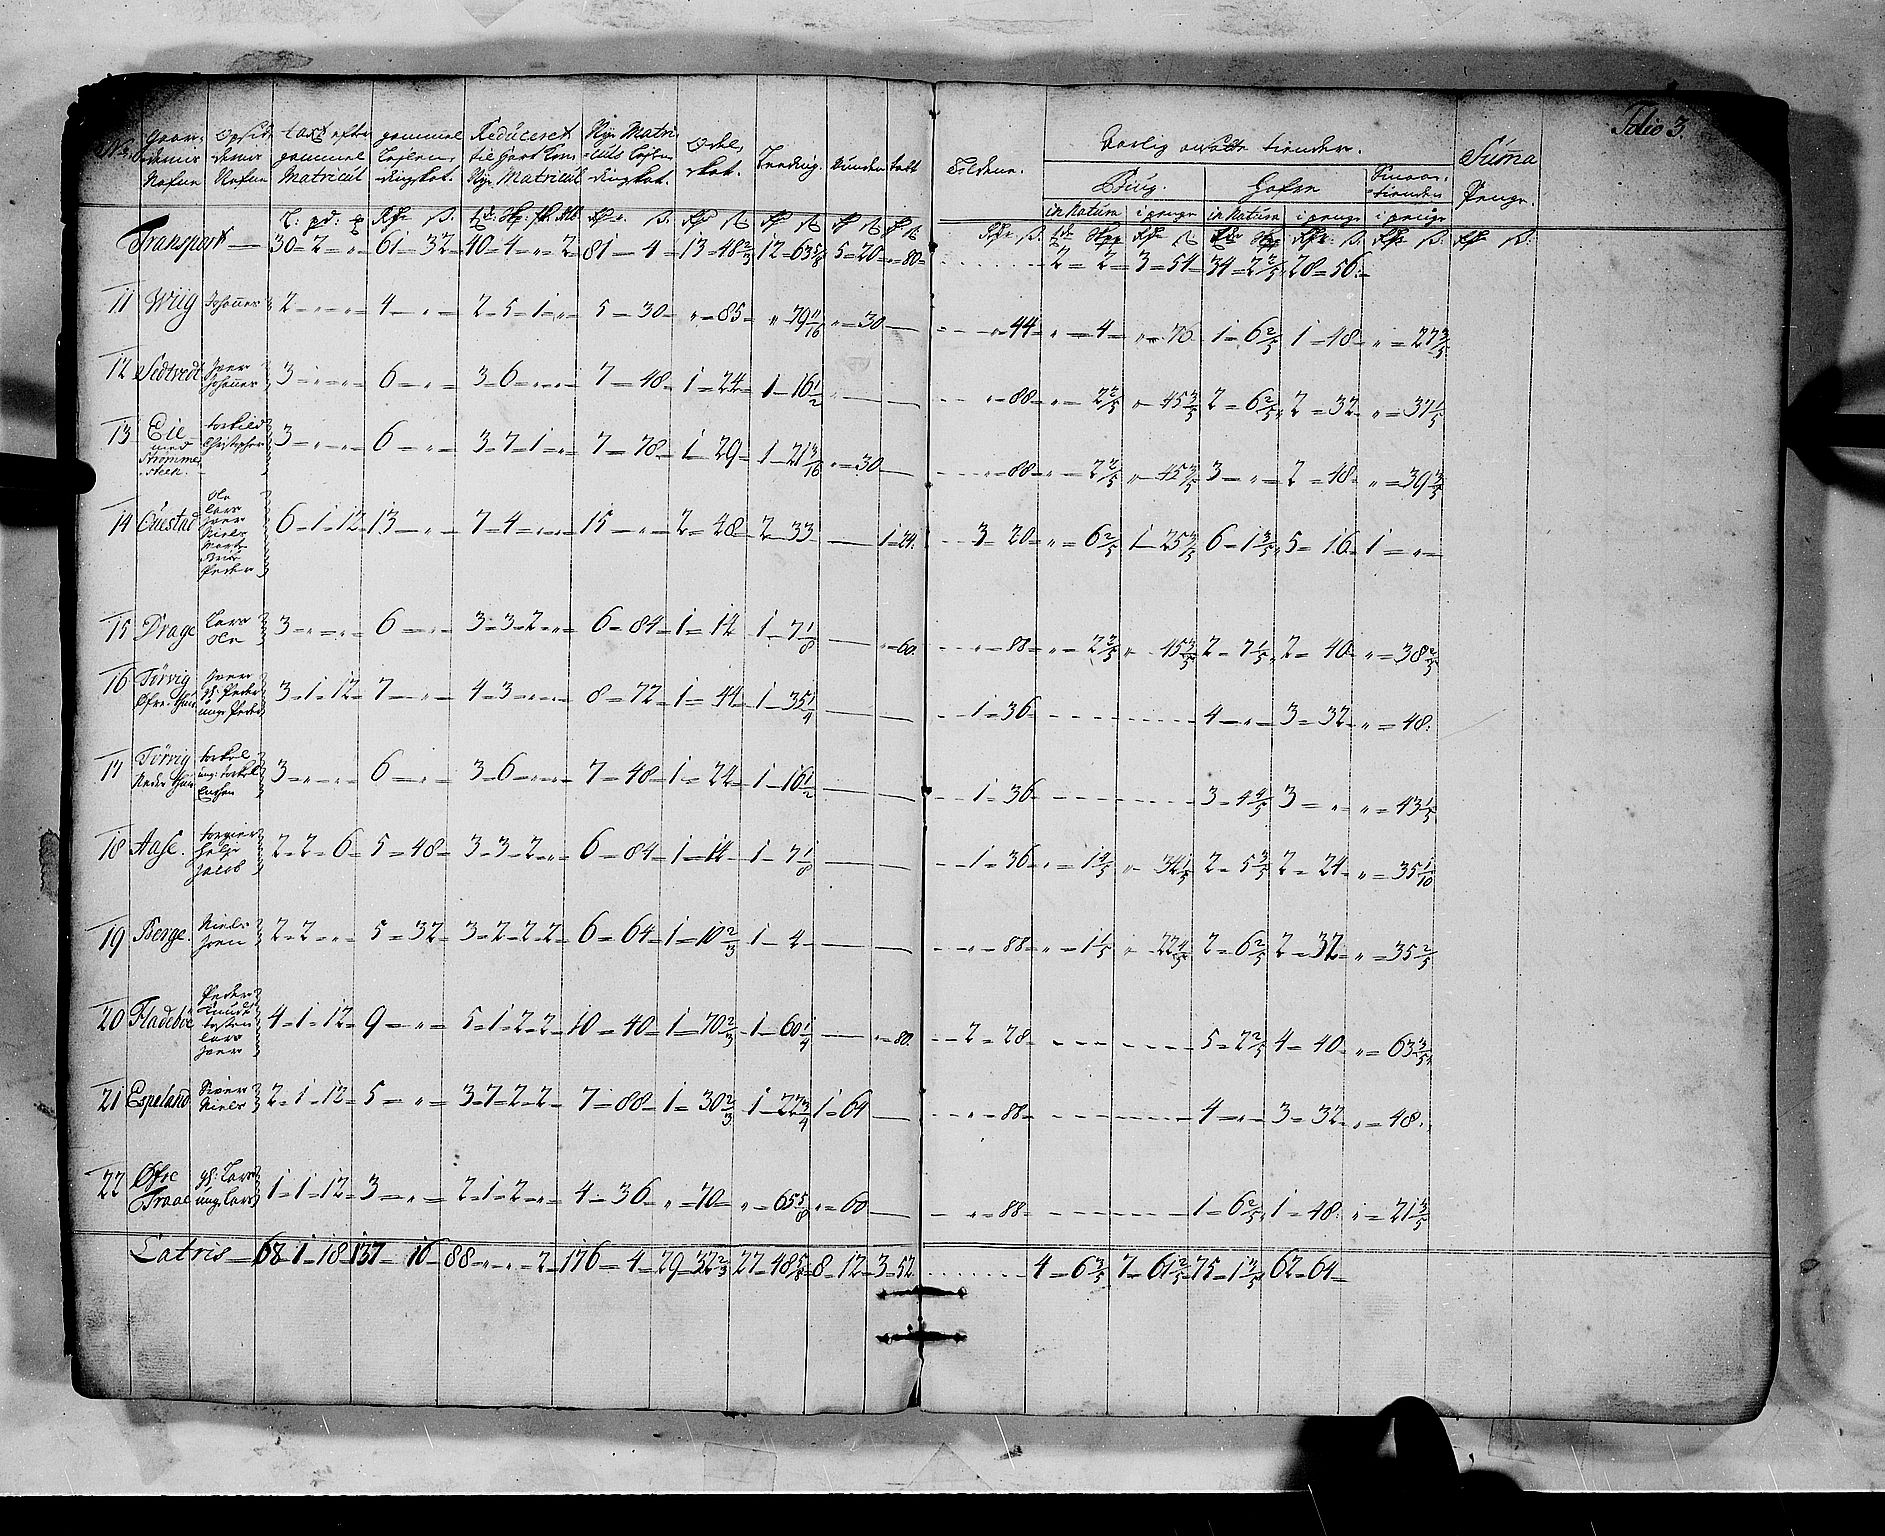 Folio 3.
No: Gaardernis Nafne Opsid= dernis Nafne taxt efter gammel Matricul gammel Leylen= dingskat. Reduceret til Hart Korn Nye Matricul Nye Matri= culs Leylen= dingskat. Odel= skat. Leeding. Toldene. Aarlig ansatte tiender. Summa Penge.
Biug. Hafre Smaae= tienden
in Natura i penge in Natura i penge i penge
Transport — 30-2-" 61-32 40-4-"-2 81-4 13-48 2/3 12-63 5/8 5-20 "-80 2-2 3-54 34-2 2/5 28-56
11 Wiig Johannes 2-"-" 4-" 2-5-1-" 5-30 "-85 "-79 11/16 "-30 "-44 "-4 "-76 1-6 2/5 1-48 "-27 3/5
12 Sedtvedt Iver Johannes 3-"-" 6-" 3-6-"-" 7-48 1-24 1-16 1/2 "-88 "-2 2/5 "-45 3/5 2-6 2/5 2-32 "-37 1/5
13 Eie med Strømme steen. torkild Christopher 3-"-" 6-" 3-7-1-" 7-78 1-29 1-21 3/16 "-30 "-88 "-2 2/5 "-45 3/5 3-" 2-48 "-39 3/5
14 Øuestad Ole Lars Iver Niels Peder 6-1-12 13-" 7-4-"-" 15-" 2-48 2-33 1-24 3-20 "-6 2/5 1-25 3/5 6-1 3/5 5-16 1-"
15 Drage Lars Ole 3-"-" 6-" 3-3-2-" 6-84 1-14 1-7 1/8 "-60 "-88 "-2 2/5 "-45 3/5 2-7 1/5 2-40 "-38 2/5
16 Tørvig Øfre Iver gl: Peder unge Peder 3-1-12 7-" 4-3-"-" 8-72 1-44 1-35 1/4 1-36 4-" 3-32 "-48
17 Tørvig Neder torkel ung: torkel 3-"-" 6-" 3-6-"-" 7-48 1-24 1-16 1/2 1-36 3-4 4/5 3-" "-43 1/5
18 Aase. torgier Helje Jacob 2-2-6 5-48 3-3-2-" 6-84 1-14 1-7 1/8 1-36 "-1 4/5 "-34 1/5 2-5 3/5 2-24 "-35 1/10
19 Berge. Niels 2-2-" 5-32 3-2-2-2 6-64 1-10 2/3 1-4 "-88 "-1 1/5 "-22 4/5 2-6 2/5 2-32 "-35 2/5
20 Fladebøe Peder Knud Lars Iver 4-1-12 9-" 5-1-2-2 10-40 1-70 2/3 1-60 1/4 "-80 2-28 5-2 2/5 4-40 "-63 3/5
21 Espeland Niels 2-1-12 5-" 3-7-2-2 7-88 1-30 2/3 1-22 3/4 1-64 "-88 4-" 3-32 "-48
22 Øfre Traae gl: Lars ung: Lars 1-1-12 3-" 2-1-2-" 4-36 "-70 "-65 5/8 "-60 "-88 1-6 2/5 1-48 "-21 3/5
Latris — 68-1-18 137-16 88-"-"-2 176-4 29-32 2/3 27-48 5/8 8-12 3-52 4-6 3/5 7-61 2/5 75-1 3/5 62-64